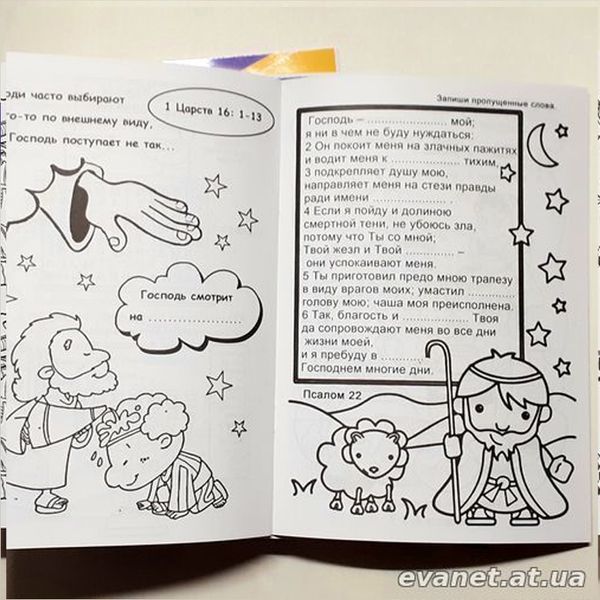 оди часто выбирают
го-то по внешнему виду,
Господь поступает не так...
1 Царств 16: 1-13
Господь смотрит
на ........................
Запиши пропущенные слова.
Господь – ........................ мой;
я ни в чем не буду нуждаться:
2 Он покоит меня на злачных пажитях
и водит меня к .................... тихим,
3 подкрепляет душу мою,
направляет меня на стези правды
ради имени .................. .
4 Если я пойду и долиною
смертной тени, не убоюсь зла,
потому что Ты со мной;
Твой жезл и Твой .............. –
они успокаивают меня.
5 Ты приготовил предо мною трапезу
в виду врагов моих; умастил ................
голову мою; чаша моя преисполнена.
6 Так, благость и ................ Твоя
да сопровождают меня во все дни
жизни моей,
и я пребуду в ............,
Господнем многие дни.
Псалом 22
evanet.at.ua